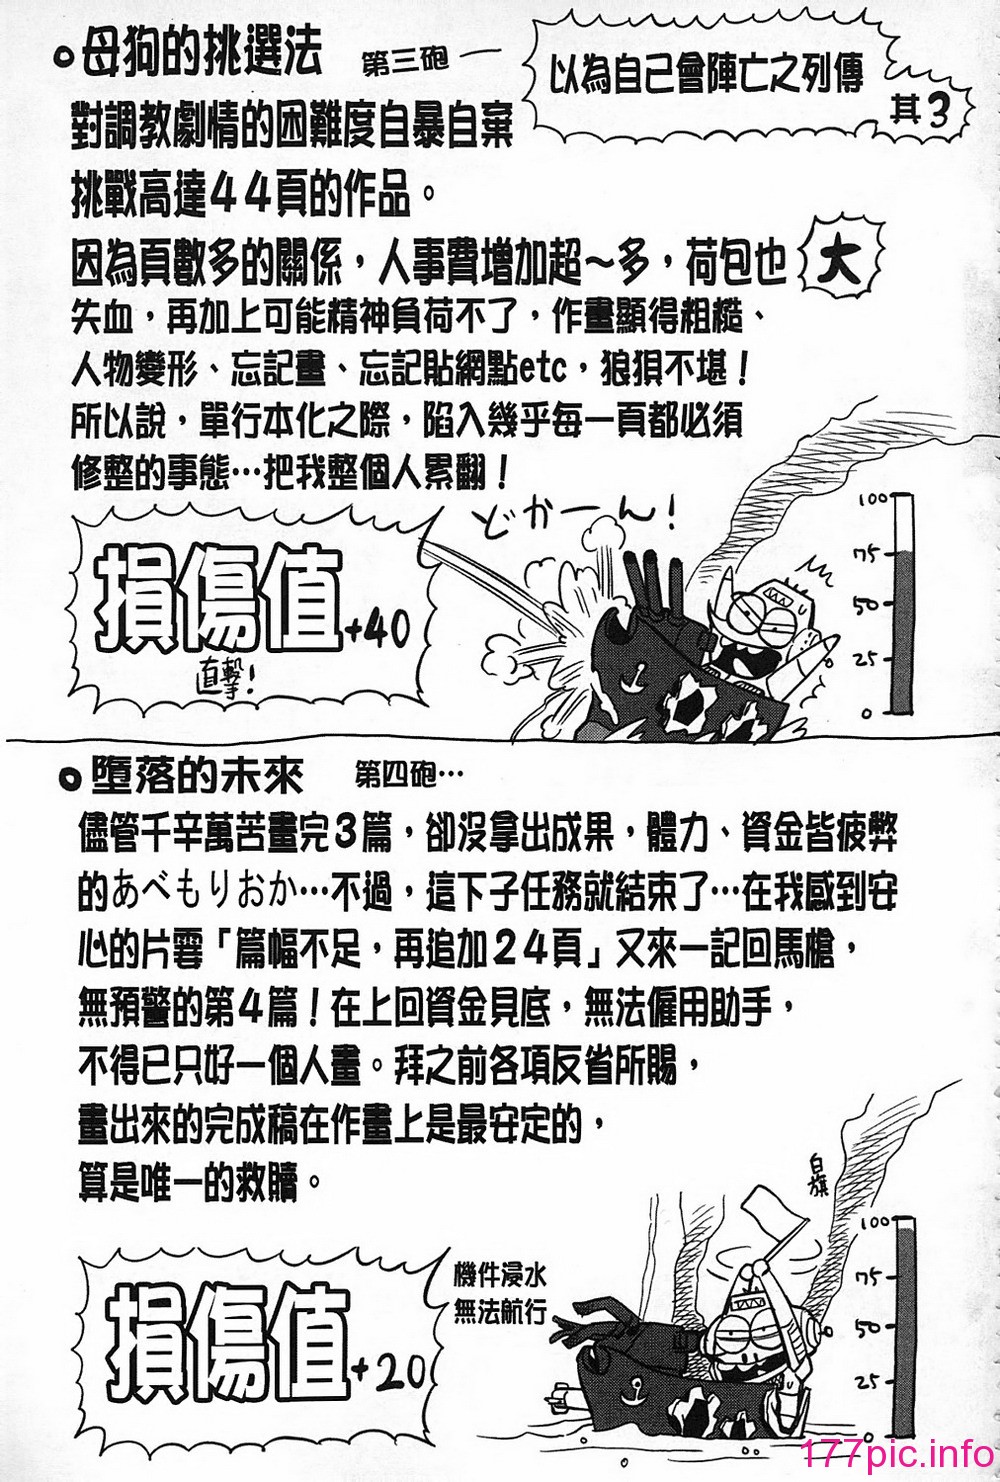 以為自己會陣亡之列傳 其3
母狗的挑選法 第三砲—
對調教劇情的困難度自暴自棄
挑戰高達44頁的作品。
因為頁數多的關係，人事費增加超～多，荷包也大
失血，再加上可能精神負荷不了，作畫顯得粗糙、
人物變形、忘記畫、忘記貼網點etc，狼狽不堪！
所以說，單行本化之際，陷入幾乎每一頁都必須
修整的事態…把我整個人累翻！
どかーん！
損傷值+40
直擊！
100
75
50
25
0
墮落的未來 第四砲…
儘管千辛萬苦畫完3篇，卻沒拿出成果，體力、資金皆疲弊
的あべもりおか…不過，這下子任務就結束了…在我感到安
心的片雲「篇幅不足，再追加24頁」又來一記回馬槍，
無預警的第4篇！在上回資金見底，無法僱用助手，
不得已只好一個人畫。拜之前各項反省所賜，
畫出來的完成稿在作畫上是最安定的，
算是唯一的救贖。
白旗
損傷值+20
機件浸水
無法航行
100
75
50
25
0
177pic.info